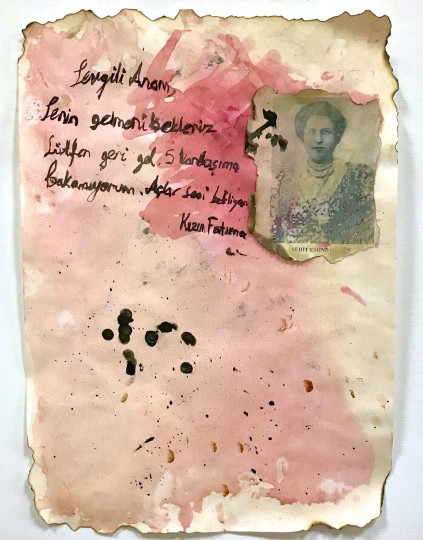 Sevgili Anam,
Senin gelmeni bekleriz
Lütfen geri gel. 5 kardaşıma
Bakamıyorum. Açlar seni bekliyor
Kızın Fatıma